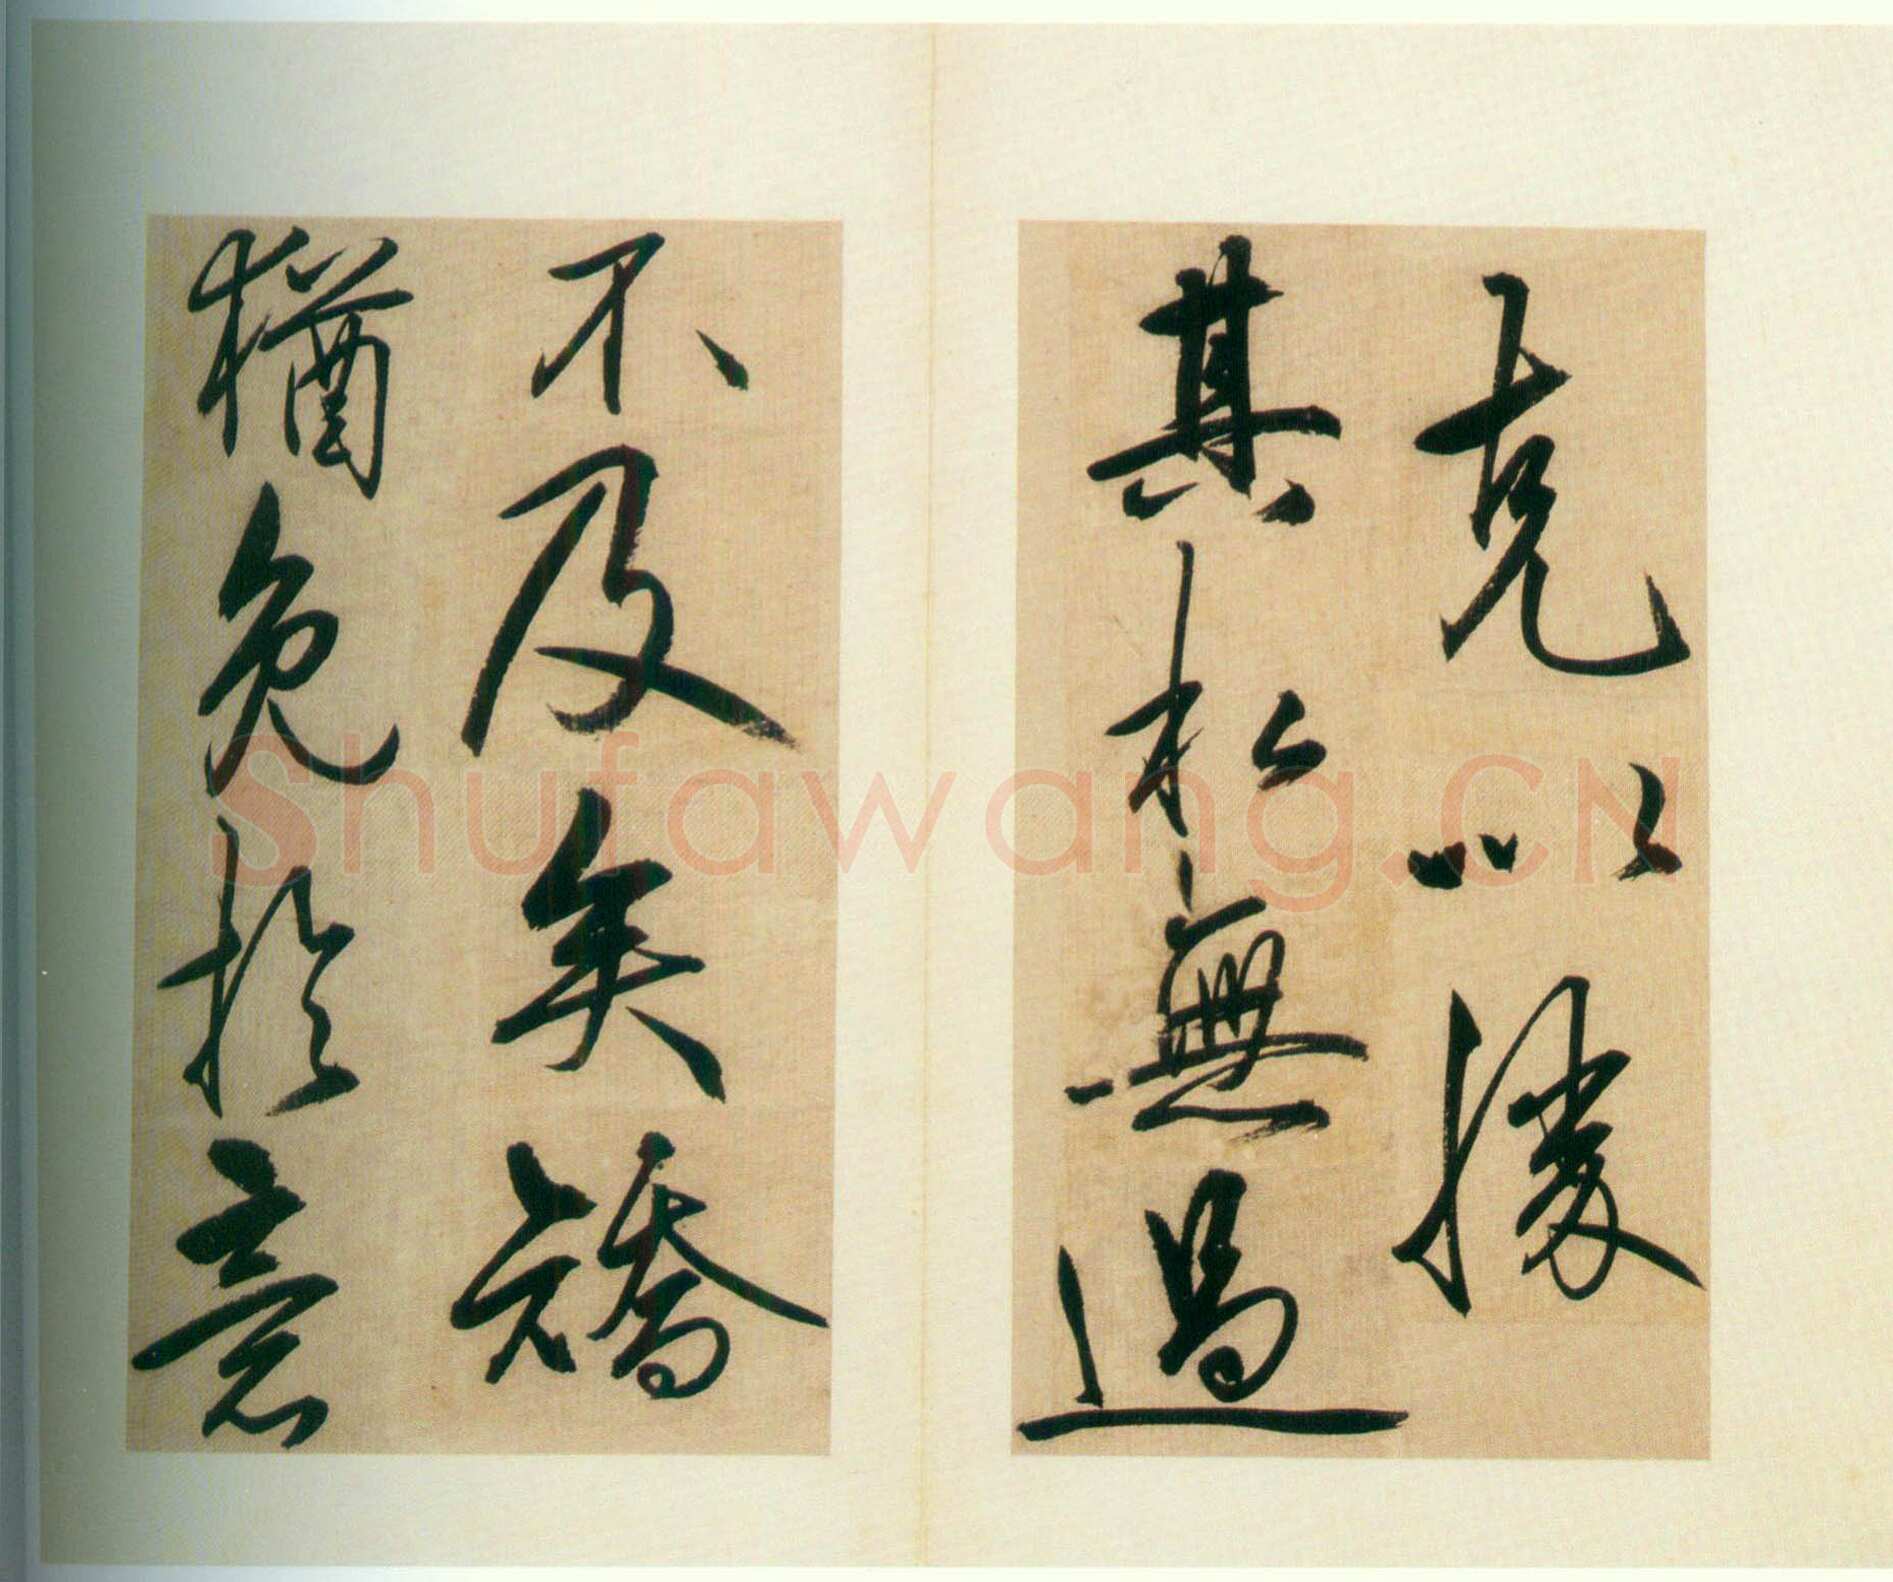 克以勝
其私無過
不及矣矯
揉免於意
Shufawang.CN